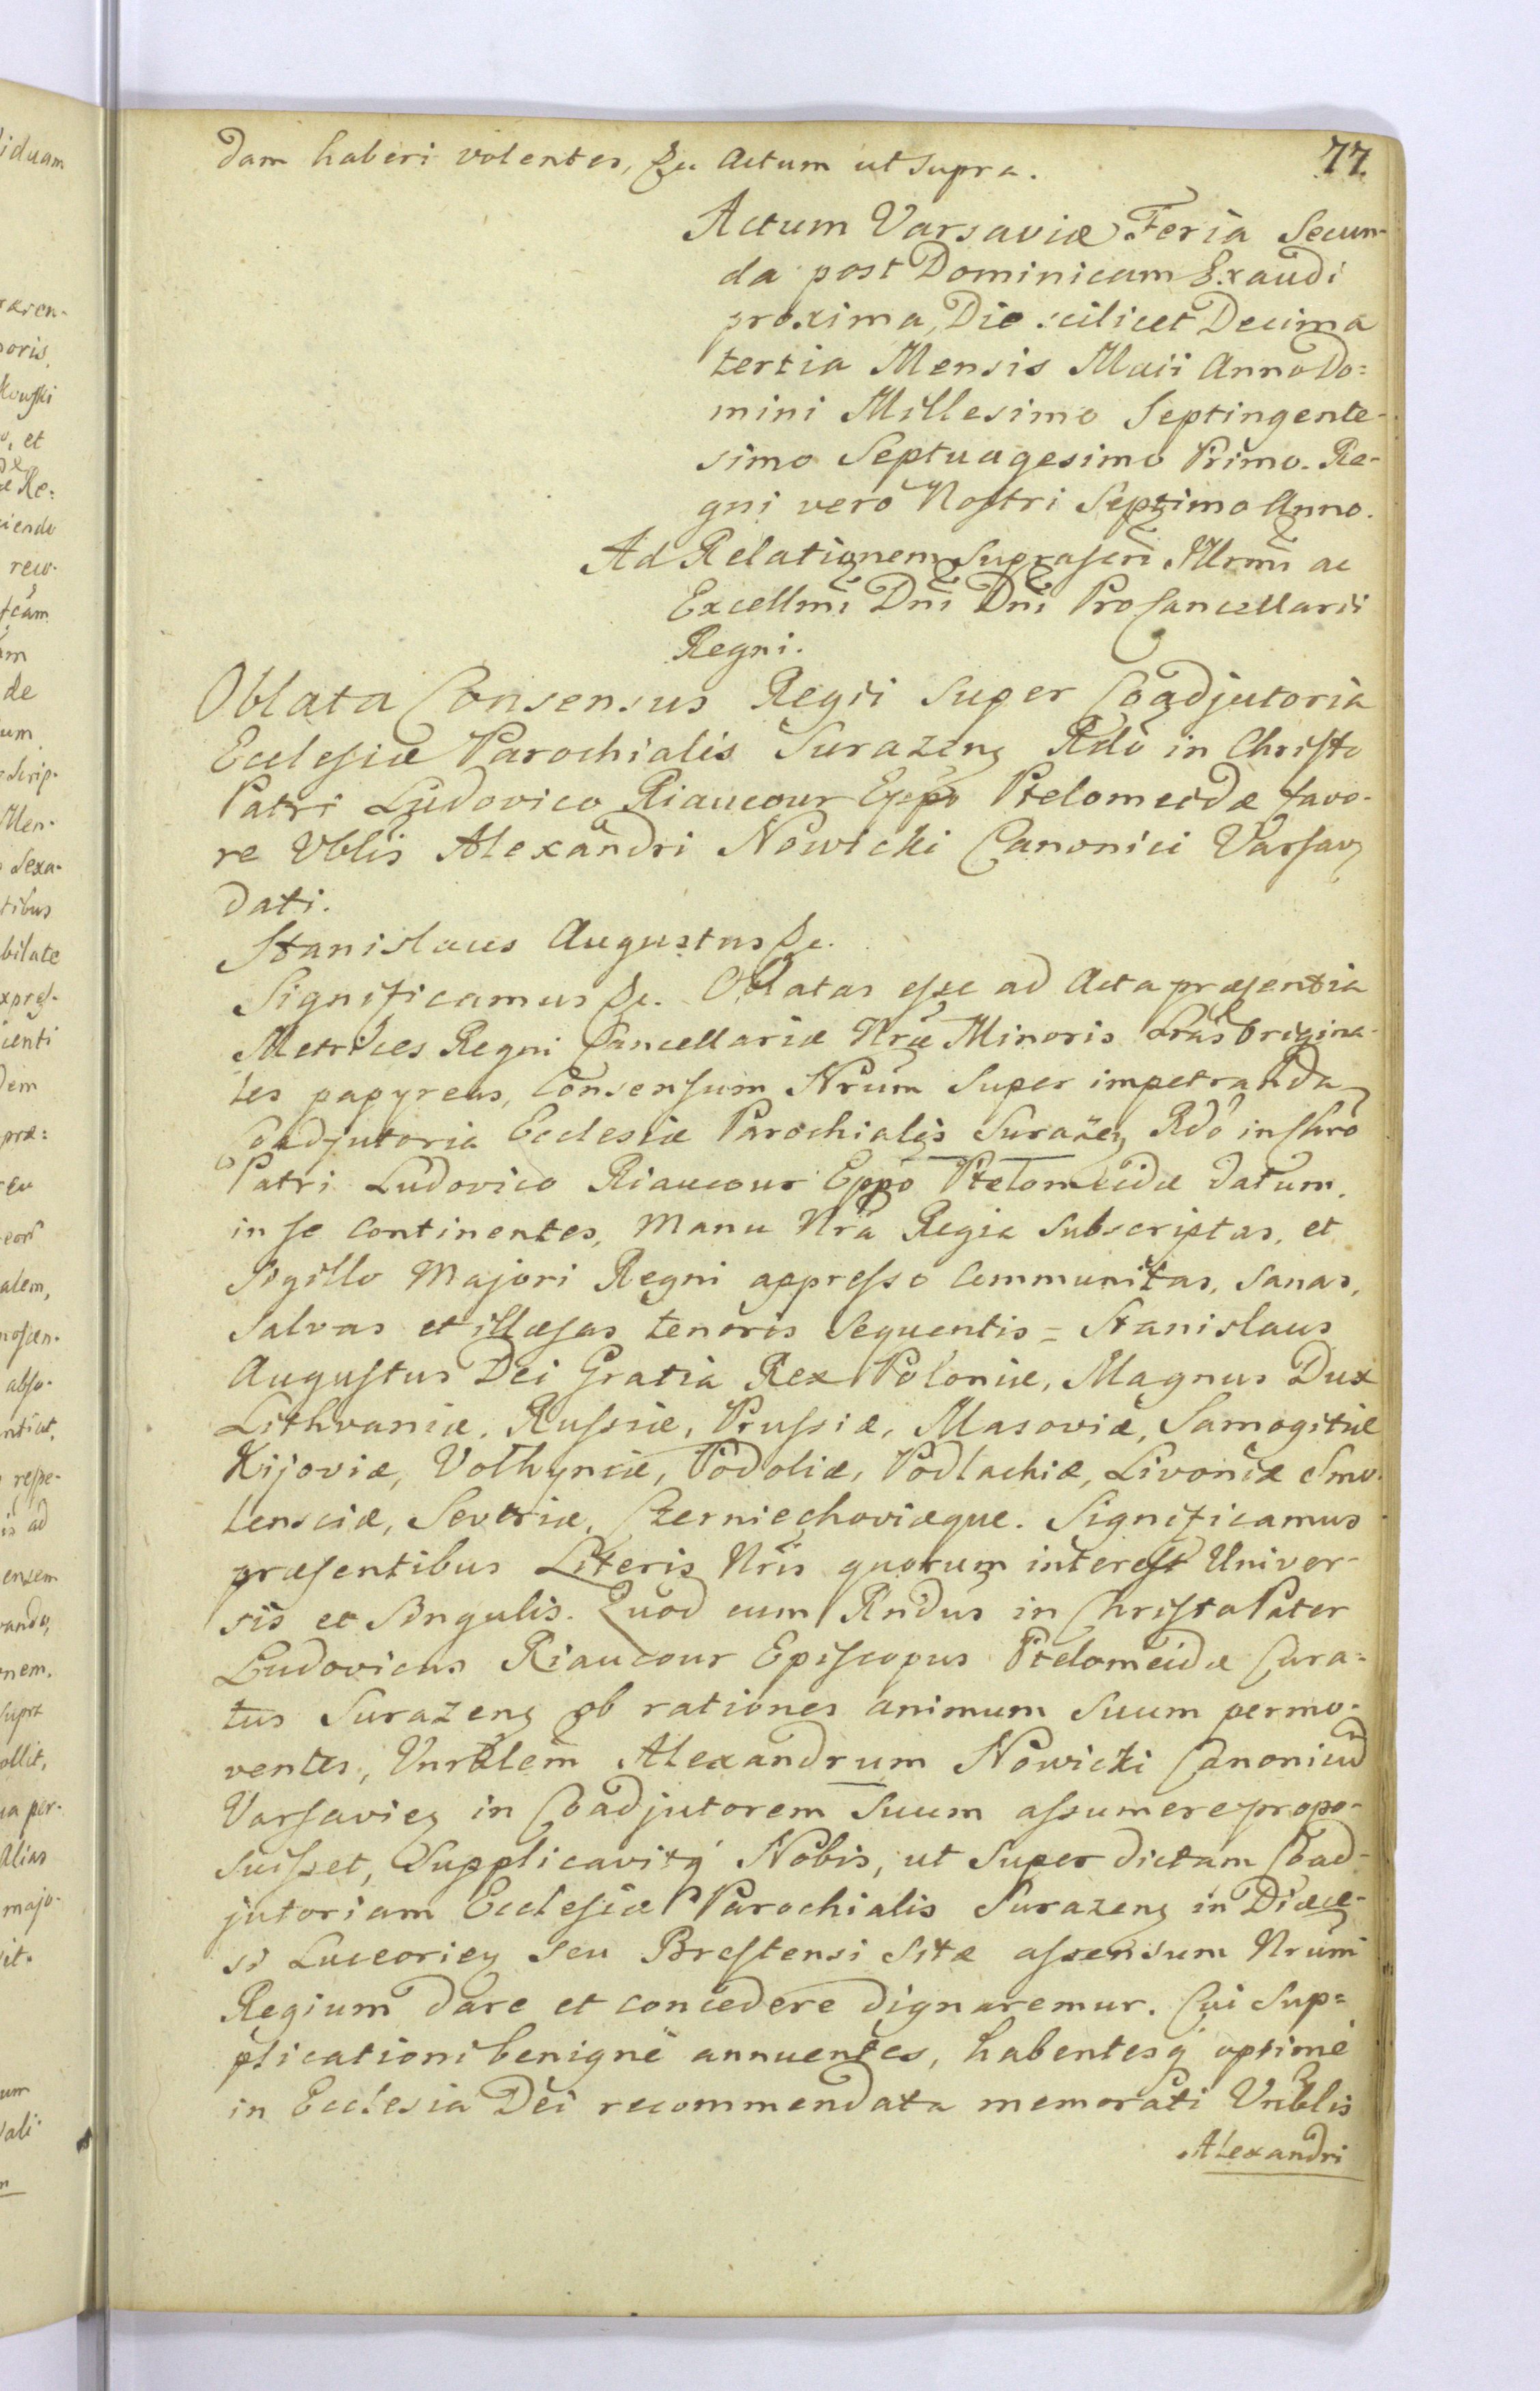 77.
dam haberi volentes, &c Actum ut supra.
Actum Varsaviæ Feria Secun-
da post Dominicam Exaudi
proxima, Die scilicet Decima
tertia Mensis Maii Anno Do=
mini Millesimo Septingente-
simo Septuagesimo Primo. Re-
gni verò Nostri Septimo Anno.
Ad Relationem Suprascri Illrmi ac
Excellmi Dni Dni ProCancellarii
Regni.
Oblata Consensus Regii Super Coadjutoria
Ecclesiæ Parochialis Surazen Rdo in Christo
Patri Ludovico Riaucour Eppo Ptelomeidæ favo-
re Vblis Alexandri Nowicki Canonici Varsav
dati.
Stanislaus Augustus &c.
Significamus &c. Oblatas esse ad Acta præsentia
Metrices Regni Cancellariæ Nræ Minoris Lras Origina-
les papyreas, Consensum Nrum Super impetranda
Coadjutoria Ecclesiæ Parochialis Surazen Rdo in Chro
Patri Ludovico Riaucour Eppo Ptelomeidæ datum,
in se continentes, Manu Nra Regia Subscriptas, et
Sigillo Majori Regni appresso Communitas, Sanas,
Salvas et illæsas tenoris Sequentis = Stanislaus
Augustus Dei Gratia Rex Poloniæ, Magnus Dux
Lithvaniæ, Russiæ, Prussiæ, Masoviæ, Samogitiæ
Kijoviæ, Volhyniæ, Podoliæ, Podlachiæ, Livoniæ Smo-
lensciæ, Severiæ, Czerniechoviæque. Significamus
præsentibus Literis Nris quorum interest Univer-
sis et Singulis. Quod cum Rndus in Christo Pater
Ludovicus Riaucour Episcopus Ptelomeidæ Cura=
tus Surazen ob rationes animum Suum permo-
ventes, Vnrblem Alexandrum Nowicki Canonicum
Varsavien in Coadjutorem Suum assumere propo-
suisset, Supplicavitq Nobis, ut Super dictam Coad-
jutoriam Ecclesiæ Parochialis Surazen in Diæce-
si Luceorien seu Brestensi Sitæ assensum Nrum
Regium dare et concedere dignaremur. Cui Sup=
plicationi benignè annuentes, habentesq optimè
in Ecclesia Dei recommendata memorati Vnrblis
Alexandri